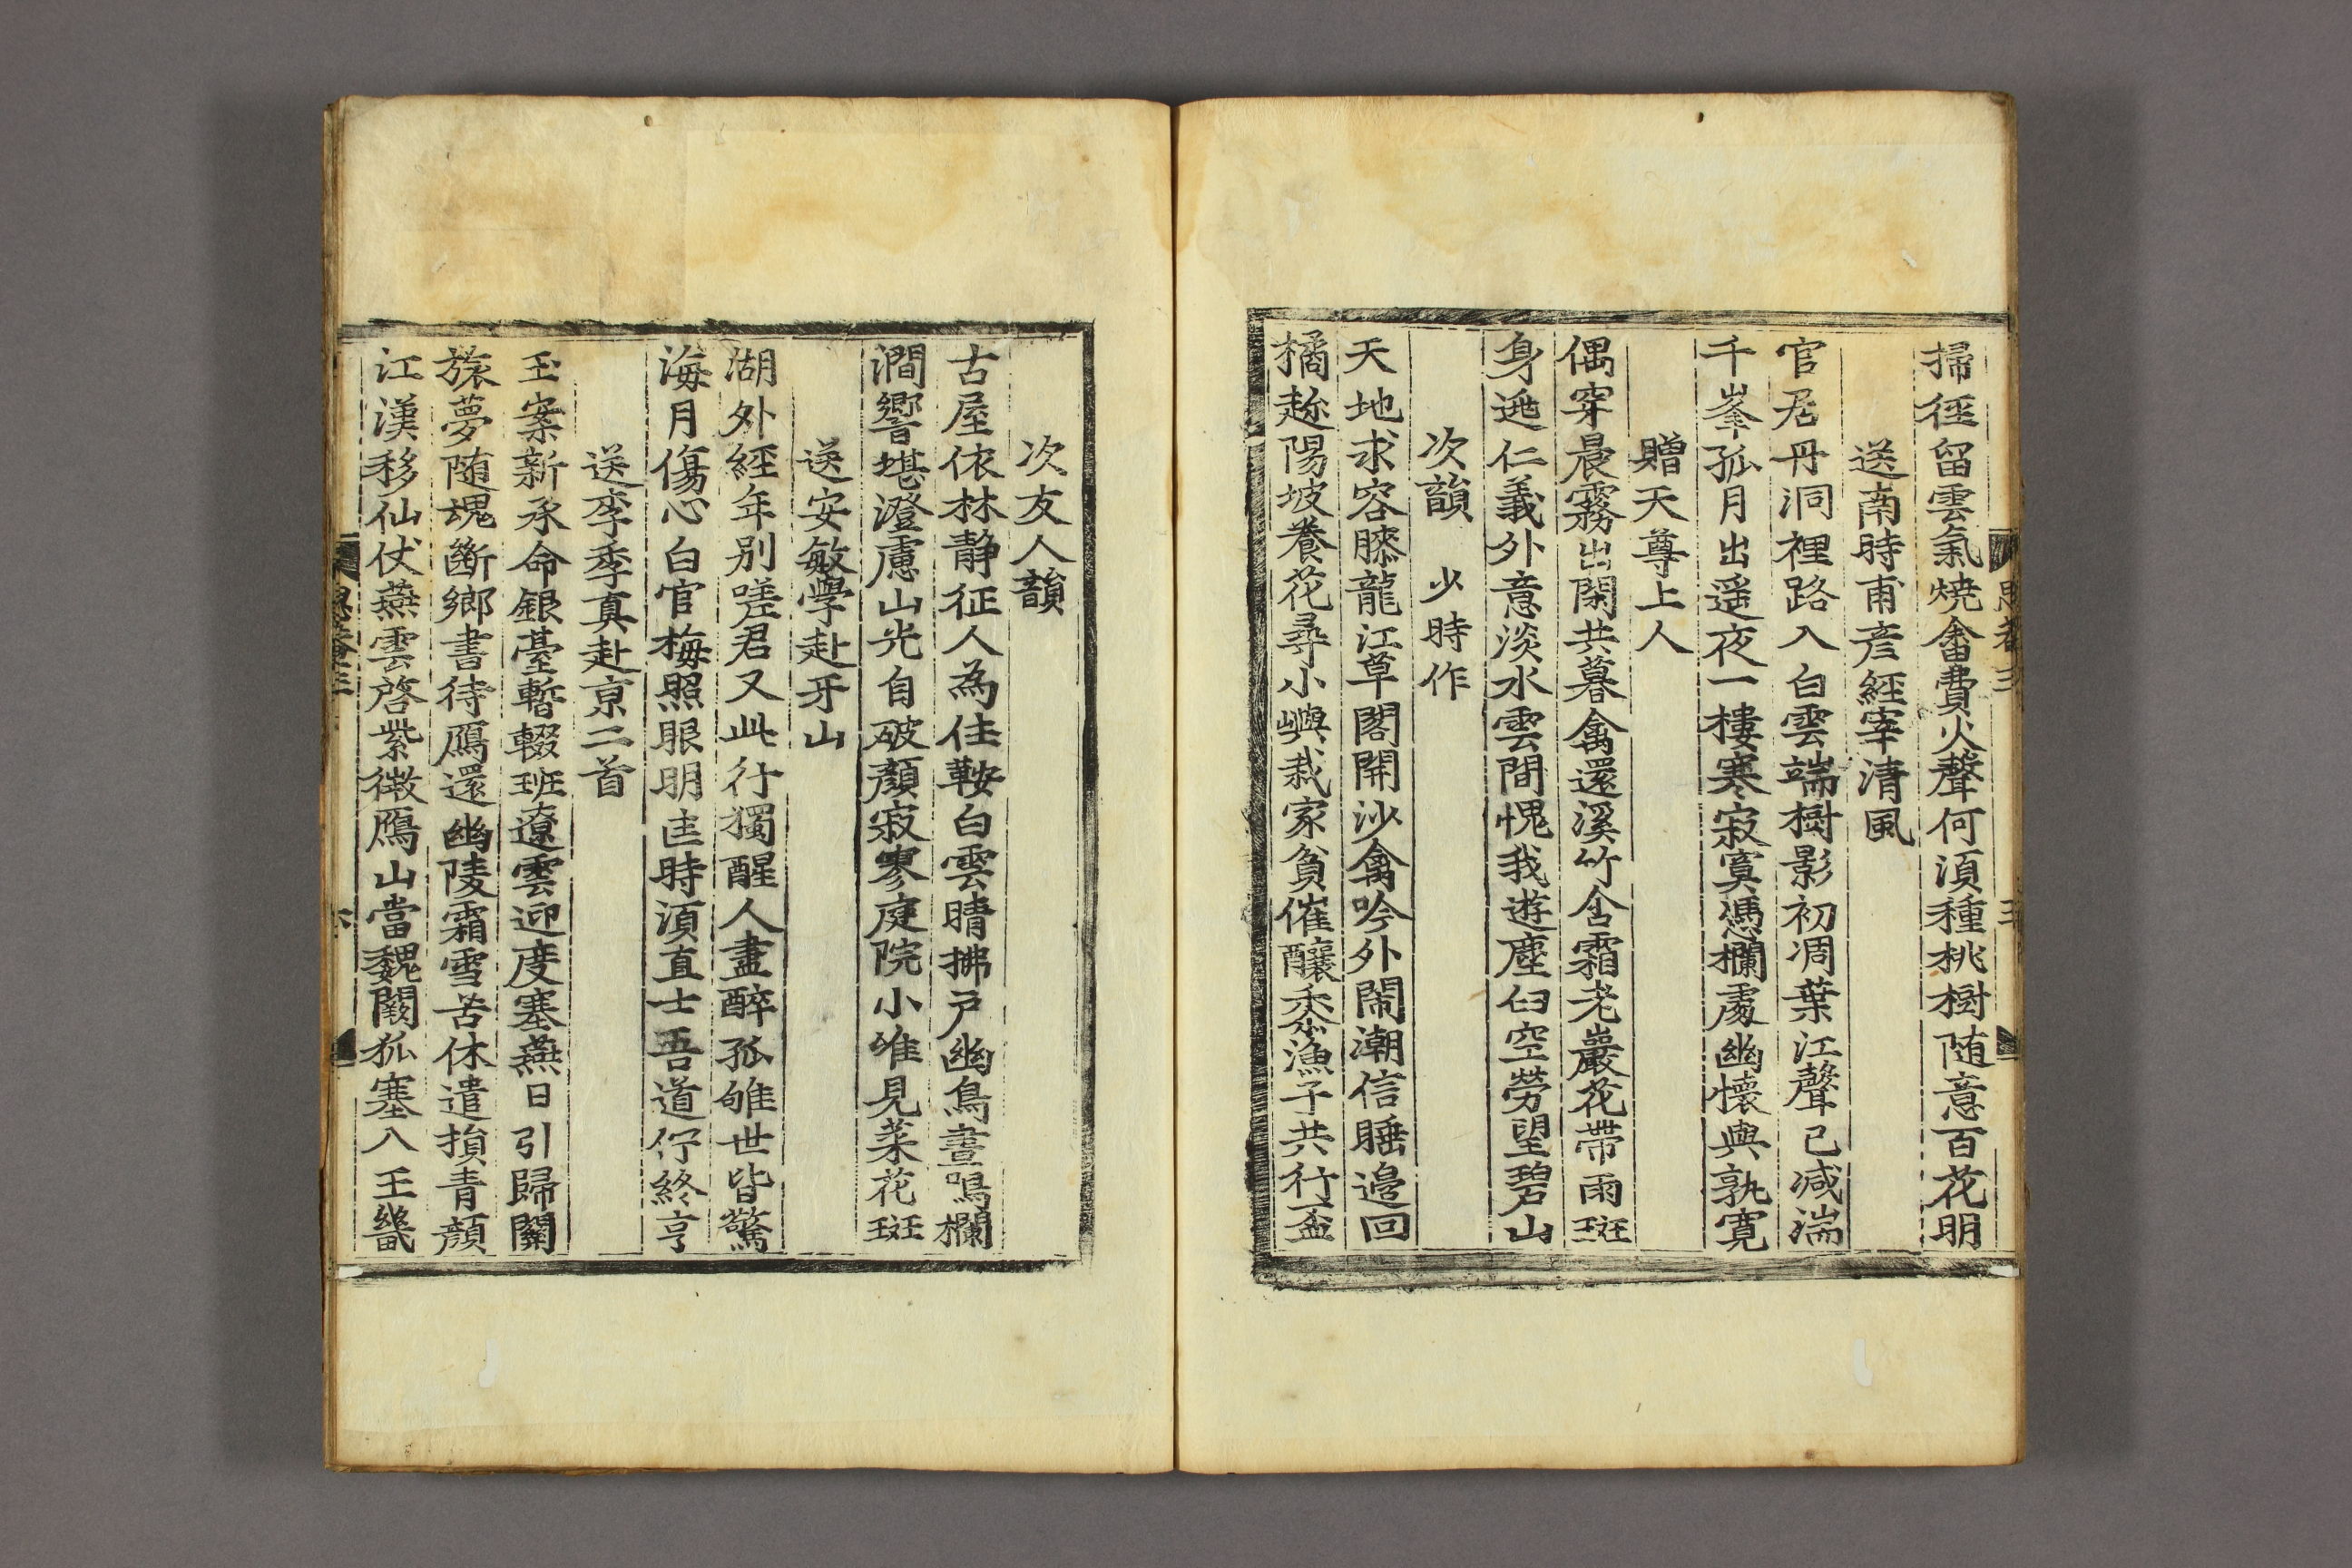 掃徑留雲氣燒畬費火聲何須種桃樹随意百花明
送南時甫彦經宰清風
官居丹洞裡路入白雲端樹影初凋葉江聲已减湍
千峯孤月出遥夜一樓寒寂寞憑欄處幽懷與孰寬
贈天尊上人
偶穿晨霧出閑共暮禽還溪竹含霜老巖花帶雨斑
身逃仁義外意淡水雲間愧我遊塵臼空勞望碧山
次韻 少時作
天地求容膝龍江草閣開沙禽吟外閙潮信睡邉回
橘趂陽坡養花尋小嶼栽家貧催釀黍漁子共行盃
次友人韻
古屋依林静征人為住鞍白雲晴拂戶幽鳥晝鳴欄
澗響堪澄慮山光自破顏寂寥庭院小唯見菜花斑
送安敏學赴牙山
湖外經年别嗟君又此行獨醒人盡醉孤雊世皆驚
海月傷心白官梅照眼明匡時須直士吾道佇終亨
送李季真赴京二首
玉案新承命銀臺暫輟班遼雲迎度塞燕日引歸關
旅夢随魂斷鄉書待鴈還幽陵霜雪苦休遣損青顏
江漢移仙仗燕雲啓紫微鴈山當魏闕狐塞入王畿